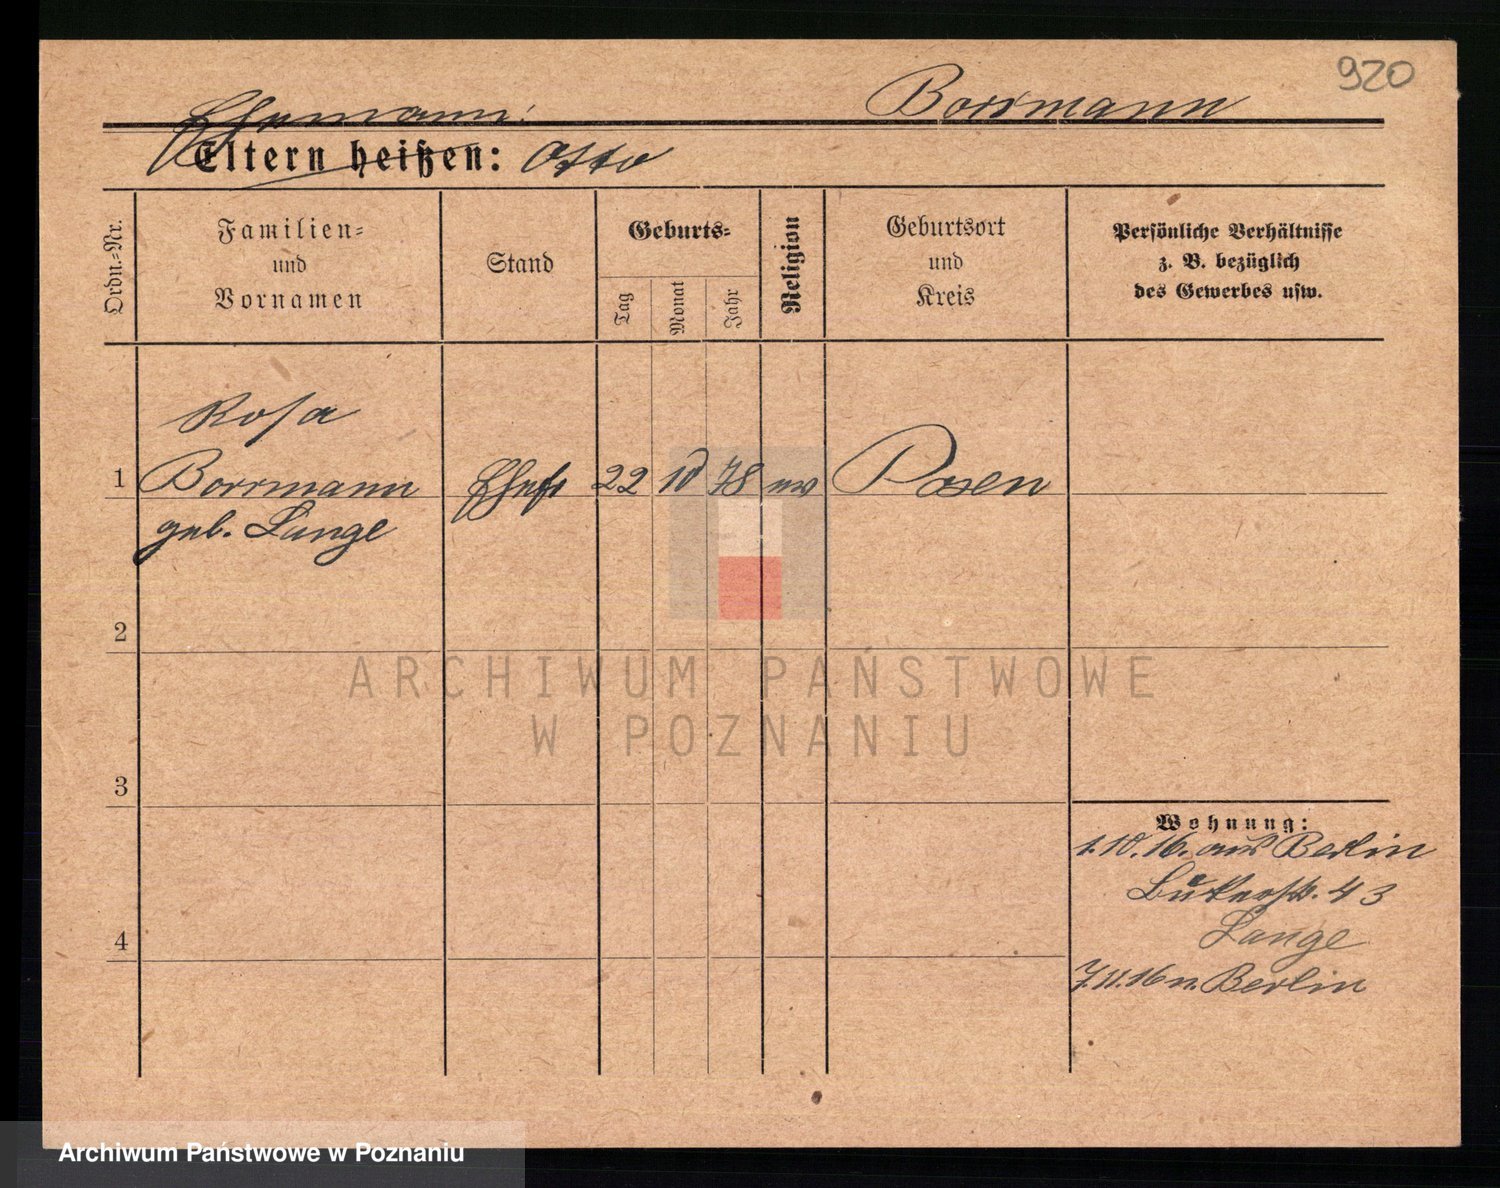 920
Borrmann
Ehemann:
Eltern heißen: Otto
Ordn.-Nr.
Familien-
und
Vornamen
Stand
Geburts-
Tag
Monat
Jahr
Religion
Geburtsort
und
Kreis
Persönliche Verhältnisse
z. B. bezüglich
des Gewerbes usw.
Rosa
1 Borrmann Ehefr 22 10 78 ev Posen
geb. Lange
2
3
4
Wohnung:
1.10.16. aus Berlin
43
Lange
7.11.16 n. Berlin
ARCHIWUM PAŃSTWOWE
W POZNANIU
Archiwum Państwowe w Poznaniu